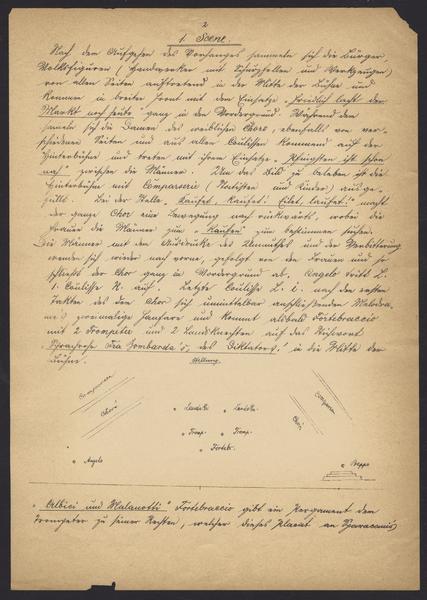 2
1. Scene.
Nach dem Aufgehen des Vorhanges sammeln sich die Bürger
Volksfiguren (Handwerker mit Schurzfellen und Werkzeugen)
von allen Seiten auftretend in der Mitte der Bühne und
kommen in breiter Front mit dem Einsatze "Friedlich lacht der
Markt uns heute" ganz in den Vordergrund. Während dem
sammeln sich die Damen des weiblichen Chors, ebenfalls von ver-
schiedenen Seiten und aus allen Coulissen kommend auf der
Hinterbühne und treten mit ihrem Einsatze "Pfingsten ist schon
nah" zwischen die Männer. Um das Bild zu beleben ist die
Hinterbühne mit Comparserie (Statisten und Kinder) ausge-
füllt. Bei der Stelle "Kaufet, Kaufet! Eilet, laufet!" macht
der ganze Chor eine Bewegung nach rückwärts, wobei die
Frauen die Männer zum "Kaufen" zu bestimmen suchen.
Die Männer mit dem Ausdrucke des Unmuthes und der Verbitterung
wenden sich wieder nach vorne, gefolgt von den Frauen und so
schliesst der Chor ganz im Vordergrund ab. Angelo tritt L.
1. Coulisse R. auf. Letzte Coulisse L. i. nach den ersten
Takten des dem Chor sich unmittelbar anschließenden Melodra-
ms zweimalige Fanfare und kommt alsbald Fortebraccio
mit 2 Trompeter und 2 Landsknechten auf das Stichwort
des Diktators!" in die Mitte der
Bühne.
Stellung.
Comparserie
Chor
Landsk.
Landsk.
Comparserie
Chor
Tromp.
Tromp.
Fortebr.
Angelo
Beppo
"Albizi und Malanotti" Fortebraccio gibt ein Pergament dem
Trompeter zu seiner Rechten, welcher dieses Placat an